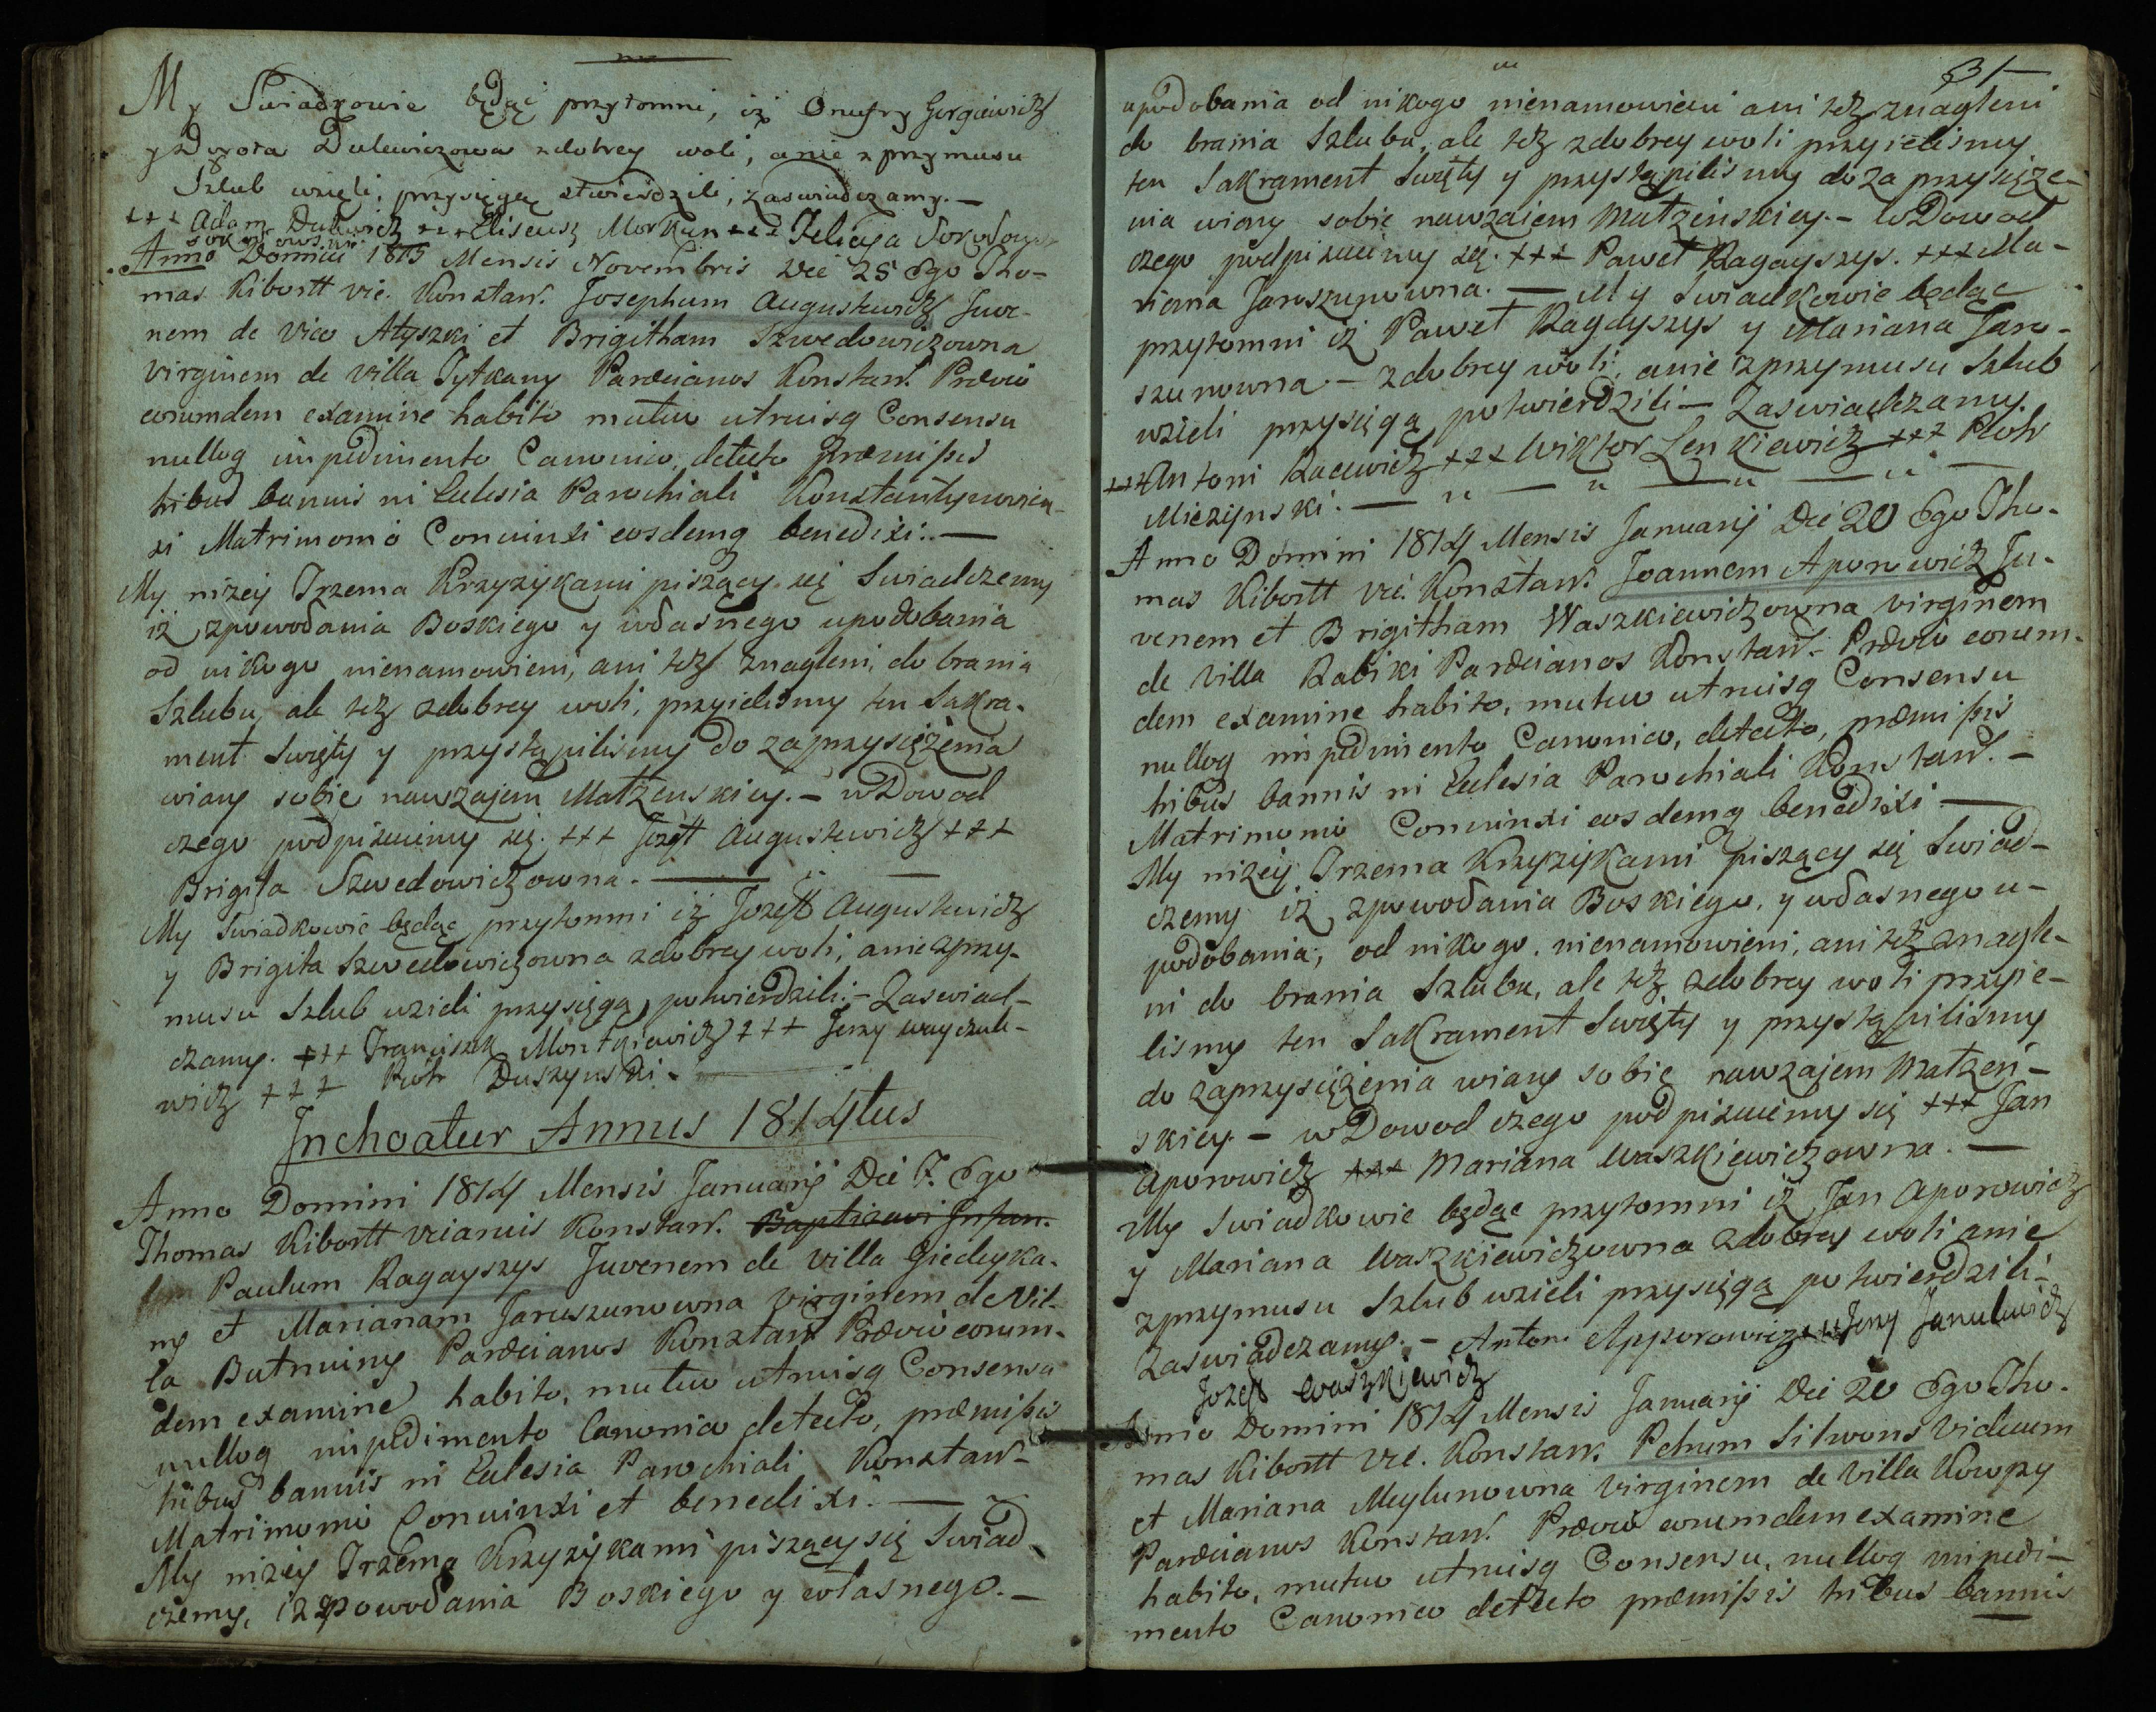 My Swiadkowie będąć przytomni, iż Onufry Gergiewicz
y Dorota Dulewiczowa zdobrey woli, anie z przymusu
Szlub wzięli, przysięgą ztwierdzili, zaswiadczamy. —
+++ Adam Dulewicz +++ Eliseusz Morkun +++ Felicya
Anno Domini 1813 Mensis Novembris Die 25 Ego Tho-
mas Kibortt vic. Konstan. Josephum Augustewicz Juve-
nem de vico Atyszki et Brigitham Szwedowiczowna
virginem de villa Tytkany Parocianos Konstan. Prævio
eorumdem examine habito mutuo utriusq Consensu
nulloq impedimento Canonico detecto Præmissis
tribus bannis in Eclesia Parochiali Konstantynowien-
si Matrimonio Conuinxi eosdemq benedixi. —
My niżey Trzema Krzyżykami piszący się Swiadczemy
iż zpowodania Boskiego y własnego upodobania
od nikogo nienamowieni, ani też znagleni, do brania
Szlubu, ale też zdobrey woli, przyielismy ten Sakra-
ment Swięty y przystąpilismy do zaprzysiężenia
wiary sobie nawzajem Małżenskiey. — w Dowod
czego podpisuiemy się. +++ Jozeff Augustewicz +++
Brigita Szwedowiczowna. —
My Swiadkowie będąc przytomni iż Jozeff Augustewicz
y Brigita Szwedowiczowna zdobrey woli, anie zprzy-
musu Szlub wzieli przysięgą potwierdzili. — Zaswiad-
czamy. +++ Franciszek Montkiewicz +++ Jerzy
wicz +++ Piotr Duszynski. —
Inchoatur Annus 1814tus
Anno Domini 1814 Mensis Januarij Die 7. Ego
Thomas Kibortt vicarius Konstan. Baptizavi Infan.
Paulum Ragayszys Juvenem de villa Giedyka-
ny et Marianam Jaruszunowna virginem de Vil-
la Butmuiny Parocianos Konstan Prævio eorum-
dem examine habito, mutuo utriusq Consensu
nulloq impedimento Canonico detecto, præmissis
tribus bannis in Eclesia Parochiali Konstan-
Matrimonio Conuinxi et benedixi. —
My niżey Trzema Krzyżykami piszący się Swiad-
czemy, iż zpowodania Boskiego y własnego. —
31
upodobania od nikogo nienamowieni ani też znagleni
do brania Szlubu, ale też zdobrey woli przyielismy
ten Sakrament Swięty y przystąpilismy do zaprzysięże-
nia wiary sobie nawzaiem Małżeńskiey. — w Dowod
czego podpisuiemy się. +++ Paweł Ragayszys. +++ Ma-
riana Jaruszunowna. — My Swiadkowie będąc
przytomni iż Paweł Ragayszys y Mariana Jaru-
szunowna — zdobrey woli, anie zprzymusu Szlub
wzieli przysięgą potwierdzili — Zaswiadczamy.
+++ Antoni Racewicz +++ Wiktor Lenkiewicz +++ Piotr
Miczynski. —
Anno Domini 1814 Mensis Januarij Die 20 Ego Tho-
mas Kibortt vic. Konstan. Joannem Aporowicz Ju-
venem et Brigitham Waszkiewiczowna virginem
de villa Rabiki Parocianos Konstan. Prævio eorum-
dem examine habito, mutuo utriusq Consensu
nulloq impedimento Canonico, detecto, præmissis
tribus bannis in Eclesia Parochiali Konstan. —
Matrimonio Conuinxi eosdemq benedixi —
My niżey Trzema Krzyżykami piszący się Swiad-
czemy iż zpowodania Boskiego, y własnego u-
podobania, od nikogo, nienamowieni, ani też znagle-
ni do brania Szlubu, ale też zdobrey woli przyie-
lismy ten Sakrament Swięty y przystąpilismy
do zaprzysiężenia wiary sobie nawzajem Małżeń-
skiey. — w Dowod czego podpisuiemy się +++ Jan
Aporowicz +++ Mariana Waszkiewiczowna. —
My Swiadkowie będąc przytomni iż Jan Aporowicz
y Mariana Waszkiewiczowna zdobrey woli anie
zprzymusu Szlub wzieli przysięgą potwierdzili —
Zaswiadczamy. — Antoni Apporowicz +++ Jerzy Janulewicz
Jozeff Waszkiewicz
Anno Domini 1814 Mensis Januarij Die 20 Ego Tho-
mas Kibortt vic. Konstan. Petrum Silwons Viduum
et Mariana Meylunowna virginem de villa Kowpry
Parocianos Konstan. Prævio eorumdem examine
habito, mutuo utriusq Consensu, nulloq impedi-
mento Canonico detecto præmissis tribus bannis